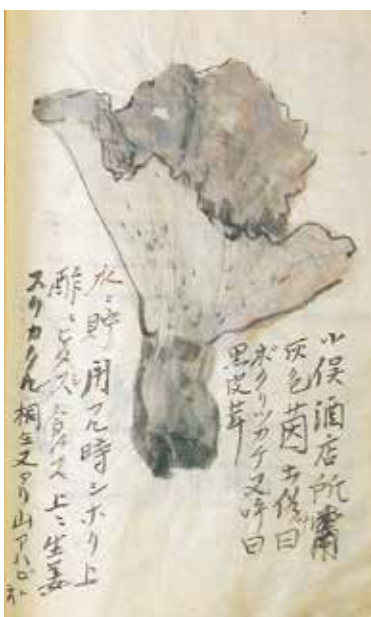 小俣酒店所
灰色茵土俗曰
ボクリツカケ又呼曰
黒皮茸
水ニ貯用フル時シホリ上
酢ニヒタス食ス上ニ生姜
スリカクル 桐生又アリ山アハビ